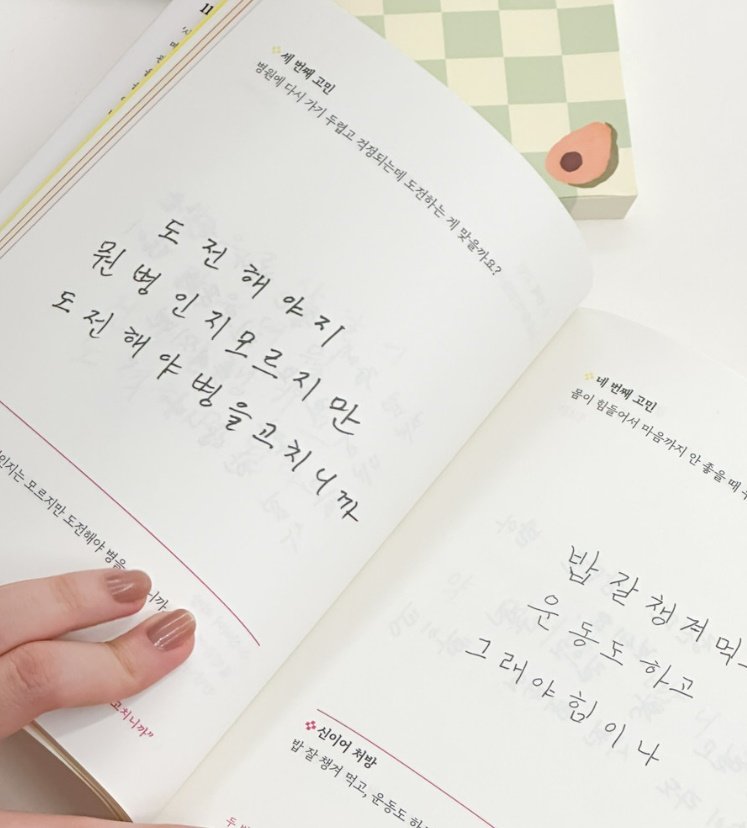 11
세 번째 고민
병원에 다시 가기 두렵고 걱정되는데 도전하는 게 맞을까요?
도전해야지
뭔 병인지모르지만
도전해야 병을고치니까
인지는 모르지만 도전해야 병을
니까
고치니까"
네 번째 고민
몸이 힘들어서 마음까지 안 좋을 때
밥 잘 챙겨먹고
운동도 하고
그래야힘이나
신이어 처방
밥 잘 챙겨 먹고, 운동도